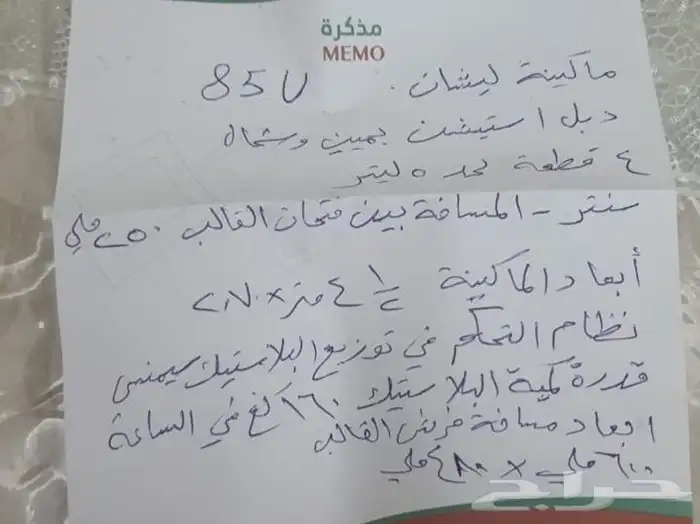 مذكرة
MEMO
ماكينة ليشان. 85U
دبل استيشن يمين وشمال
٤ قطعة لحد ٥ ليتر
سنتر - المسافة بين فتحات القالب ٢٥٠ ملي
أبعاد الماكينة ٤ ١/٢ متر × ٢,٧٠
نظام التحكم في توزيع البلاستيك سيمنس
قدرة كمية البلاستيك ١٦٠ كغ في الساعة
ابعاد مسافة فرش القالب
٦٠٠ ملي × ٤٨٠ ملي
حراج